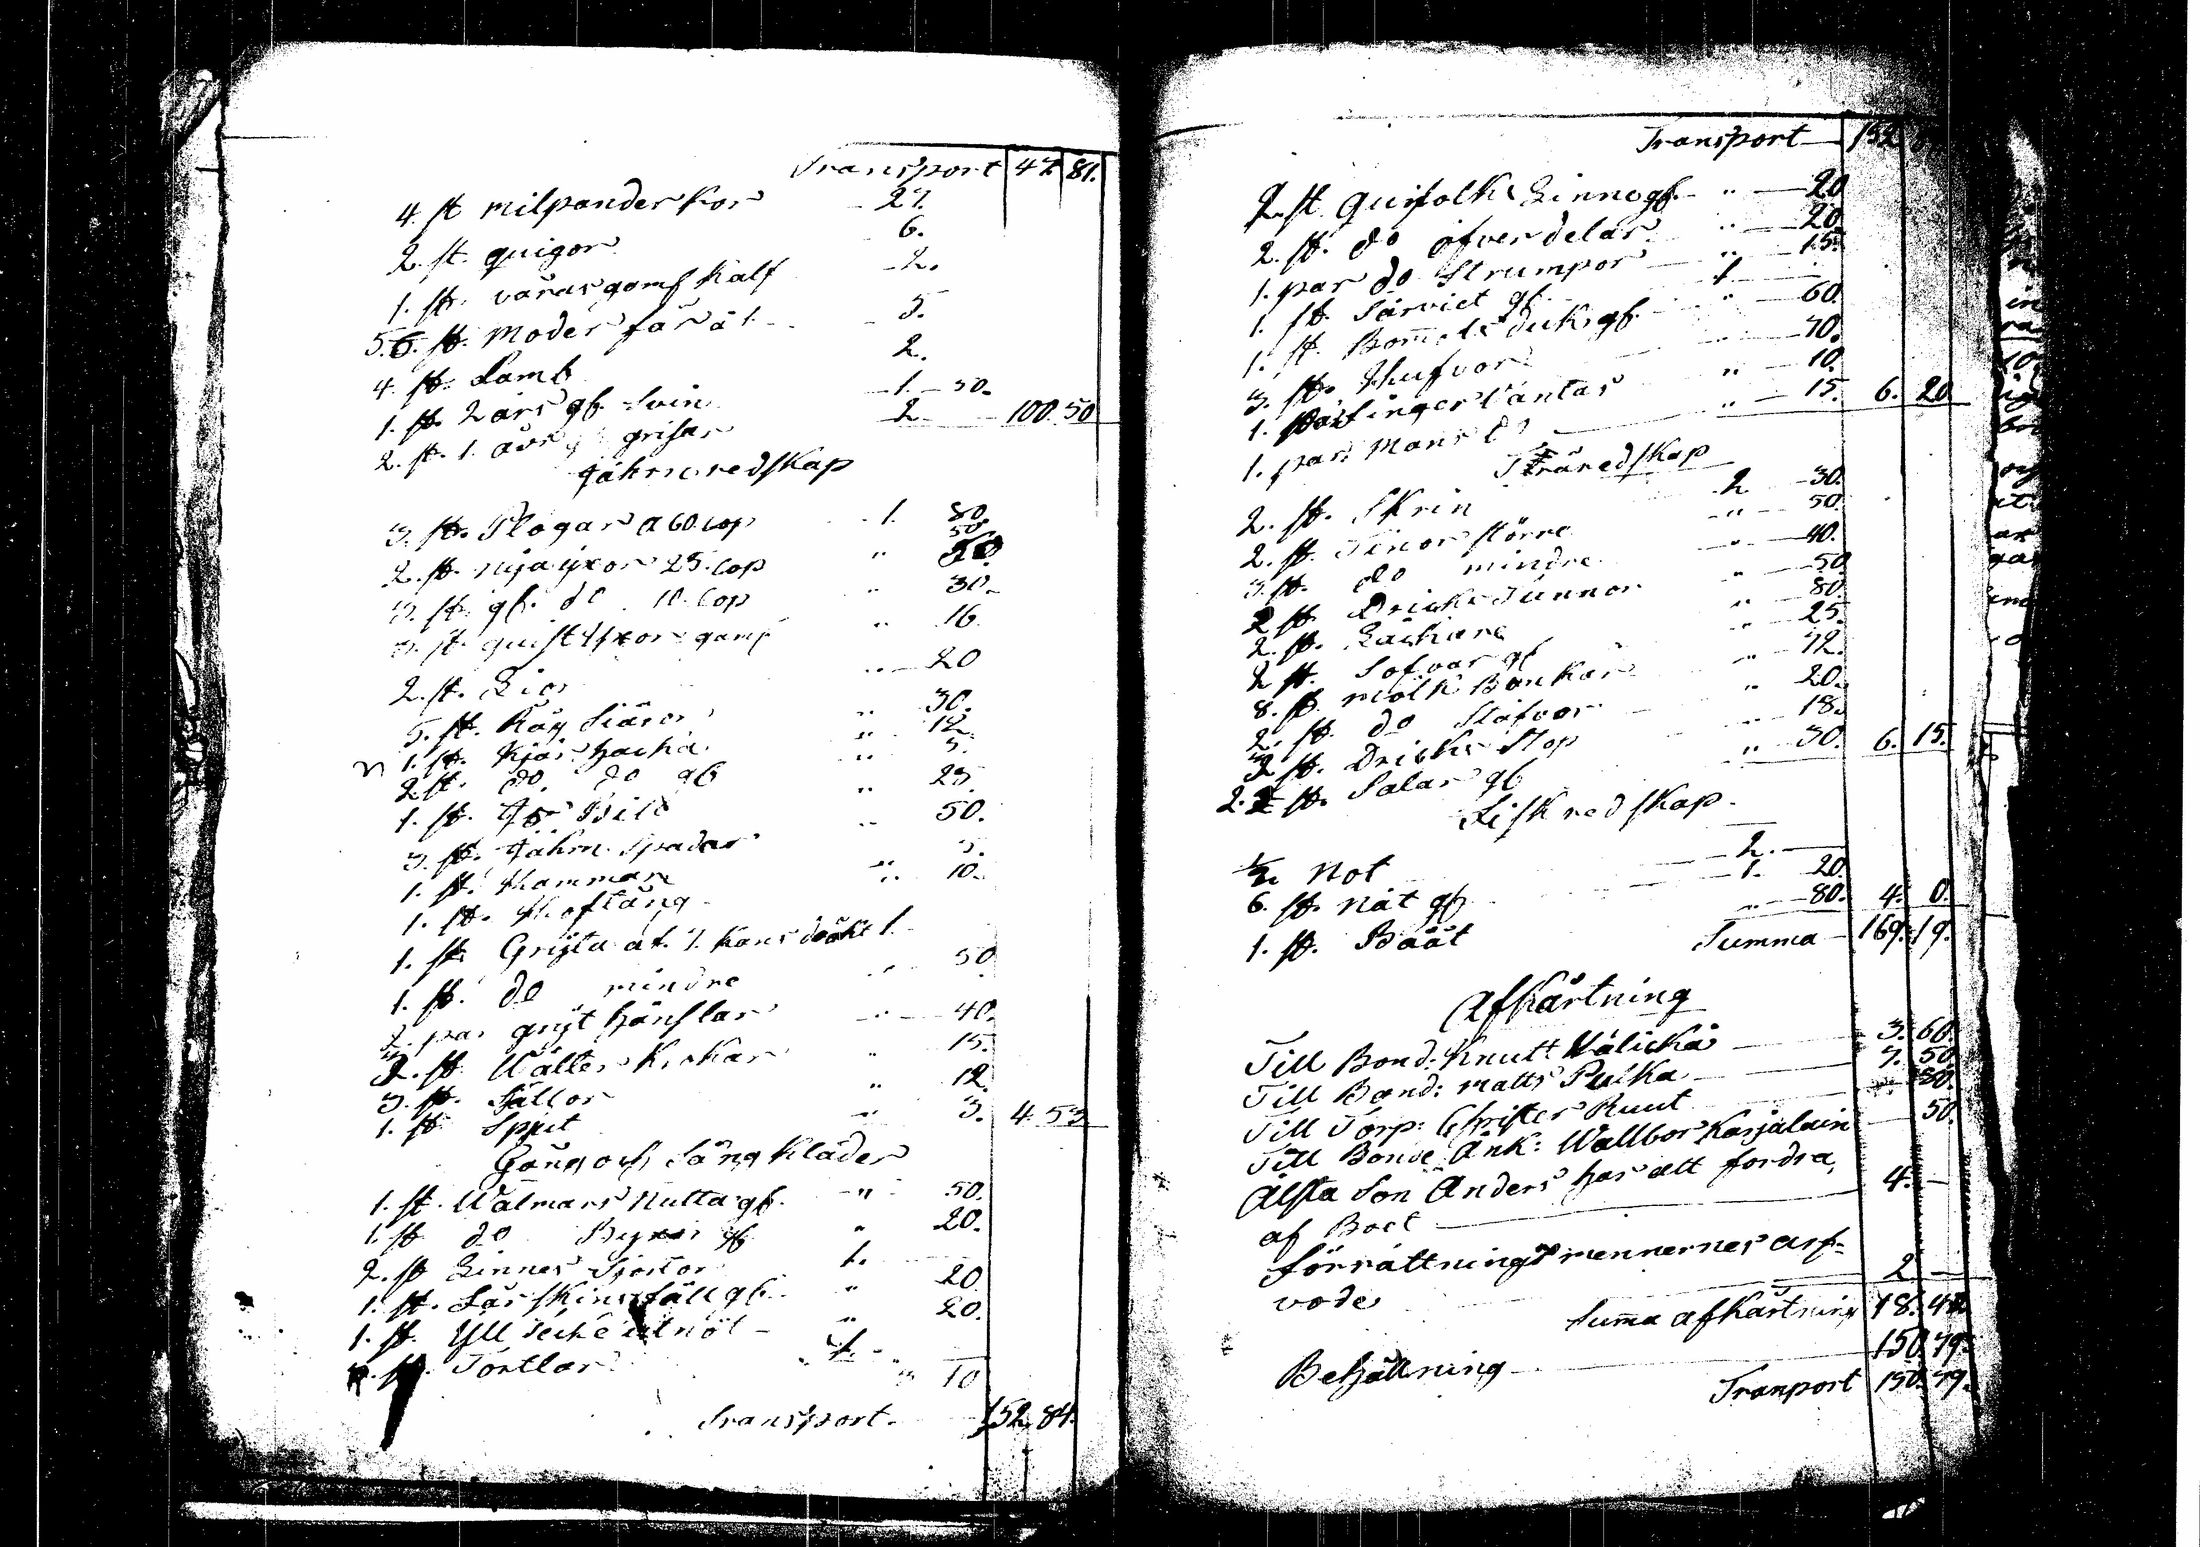 Transport 47 81.
4. st milpander Kor - 27.
2. st. quigor 6.
1. st. våras gaml Kalf - 2.
5. 6. st. Moder får à 1. - 5.
4 st. Lamb 2.
1. st. 2 års gl. Svin - 1. - 50.
2. st. 1. års grisar 2 - 100. 50
Jährn redskap
3. st. Plogar a 60. cop 1. 80.
2. st. nya yxor 25. cop " 50.
3. st. gl. do 10. Cop " 30.
3. st. quist yxor gaml " 16.
2. st. Liar " 20
5. st. Råg Siäror " 30.
1. st. Kjär hacka " 12.
2 st. do. do gl " 5.
1. st. Bill " 25.
3. st. Jährn Spadar " 50.
1. st. Hammare " 5.
1. st. Hoftång " 10.
1. st. Gryta af 7. Kans dräkt 1.
1. st. do mindre " 50.
2. par gryt hänslar " 40.
2. st. Wälter Krokar " 15.
3. st. Sållor " 12.
1. st. Spjut " 3. 4 53
Gång och Säng Kläder
1. st. Walmars Nutta gl. " 50.
1. st do Byxor gl " 20.
2. st Linnes Sjortor 1.
1. st. Fårskins fäll gl. " 20
1. st. Yll Tecke utnöt - " 20.
st. Tortlar " 10
Transport. 152. 84.
Transport - 152
2. st. Quifolks Linne gl. - " - 20
2. st. do öfver delar. " - 20.
1. par do Strumpor " - 15.
1. st. Särviet gl. 1 -
1. st. Bomuls duk gl. " - 60.
3. st. Hufvor " - 70.
1. Par finger Vantar " - 10.
1. par Mans do " - 15. 6. 20
Träredskap
2. st. Skrin 2 - 30.
2. st. Tinor större " - 50.
3. st. do mindre " - 40.
2 st. Dricks Tunnor " - 50
2. st. " - 80.
2 st. Sofvar gl " - 25.
8. st. miölk Bunkar " - 72.
2. st. do Stäfvor " - 20.
3 st. Dricks Stop " - 18.
2. st. Salar gl " - 30. 6. 15.
Fiskredskap
1/2 Not - 2. -
6. st. nät gl - 1. 20
1. st. Bååt " - 80. 4. 0.
Summa - 169. 19.
Afkårtning
Till Bond. Knutt Wälickå - 3. 60.
Till Bond: Matts Pulka - 7. 50
Till Torp: Christer Ruut - 80.
Till Bonde Änk: Wallbor Karjalain - 50.
Älsta Son Anders har att fordra
af Boet - 4. -
förrättnings mennernes arf=
vode 2 -
Summa afkårtning 18. 40.
Behållning - 150. 79.
Tranport 150. 79.